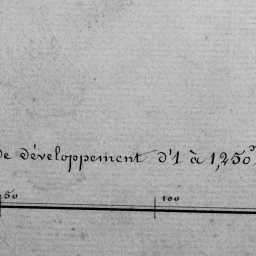 de développement d'1 à 1,250°
50 100